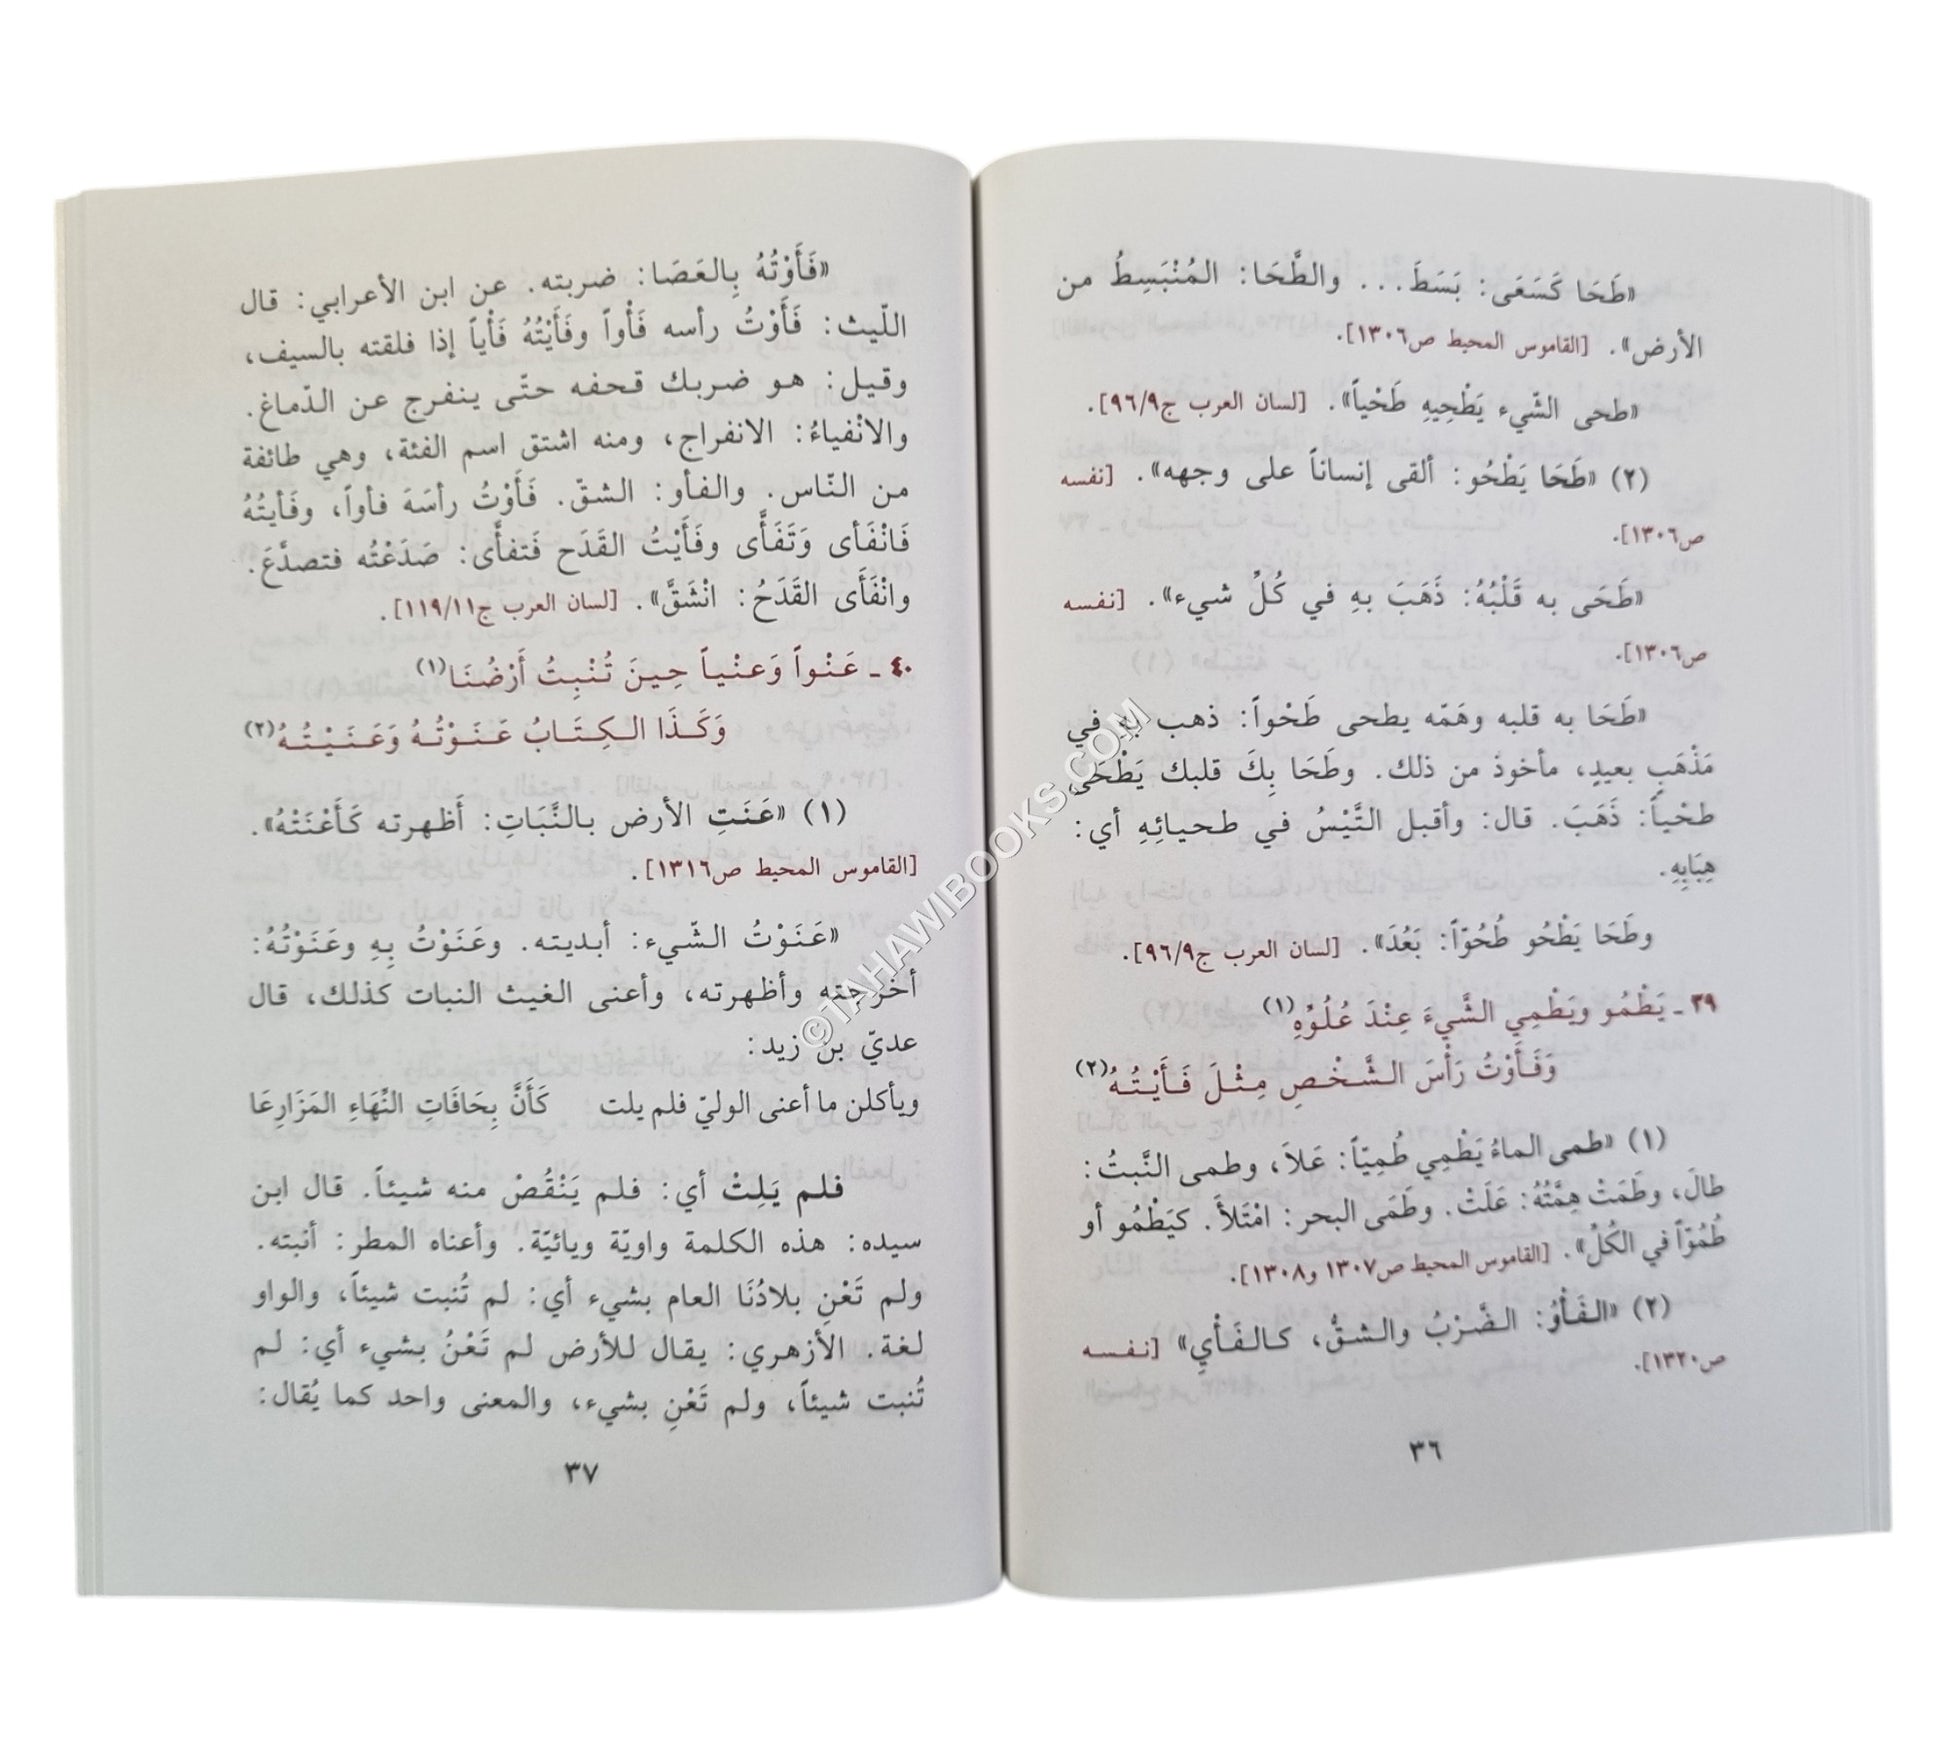 «طَحَا كَسَعَى: بَسَطَ... والطَّحَا: المُنْبَسِطُ من
الأرض». [القاموس المحيط ص١٣٠٦].
«طحى الشّيء يَطْحِيهِ طَحْياً». [لسان العرب ج٩٦/٩].
(٢) «طَحَا يَطْحُو: ألقى إنساناً على وجهه». [نفسه
ص١٣٠٦].
«طَحَى به قَلْبُهُ: ذَهَبَ بهِ في كُلِّ شيء». [نفسه
ص١٣٠٦].
«طَحَا به قلبه وهَمّه يطحى طَحْواً: ذهب به في
مَذْهَبٍ بعيدٍ، مأخوذ من ذلك. وطَحَا بِكَ قلبك يَطْحَى
طحْياً: ذَهَبَ. قال: وأقبل التَّيْسُ في طحيائِهِ أي:
هِبَابِهِ.
وطَحَا يَطْحُو طُحُوّاً: بَعُدَ». [لسان العرب ج٩٦/٩].
٣٩ ـ يَطْمُو ويَطْمِي الشَّيءَ عِنْدَ عُلُوِّهِ(١)
وَفَأَوْتُ رَأْسَ الشَّخْصِ مِثْلَ فَأَيْتُهُ(٢)
(١) «طمى الماءُ يَطْمِي طُمِيّاً: عَلاَ، وطمى النَّبتُ:
طالَ، وطَمَتْ هِمَّتُهُ: عَلَتْ. وطَمَى البحر: امْتَلأَ. كيَطْمُو أو
طُمُوّاً في الكُلِّ». [القاموس المحيط ص١٣٠٧ و١٣٠٨].
(٢) «الفَأْوُ: الضَّرْبُ والشقُّ، كالفَأْيِ» [نفسه
ص١٣٢٠].
٣٦
«فَأَوْتُهُ بِالعَصَا: ضربته. عن ابن الأعرابي: قال
اللّيث: فَأَوْتُ رأسه فَأْواً وفَأَيْتُهُ فَأْياً إذا فلقته بالسيف،
وقيل: هو ضربك قحفه حتّى ينفرج عن الدّماغ.
والانْفياءُ: الانفراج، ومنه اشتق اسم الفئة، وهي طائفة
من النّاس. والفأو: الشقّ. فَأَوْتُ رأسَهَ فأواً، وفَأيتُهُ
فَانْفَأى وَتَفَأَّى وفَأَيْتُ القَدَح فَتفأَّى: صَدَعْتُه فتصدَّعَ.
وانْفَأَى القَدَحُ: انْشَقَّ». [لسان العرب ج١١٩/١١].
٤٠ ـ عَنْواً وَعنْياً حِينَ تُنْبِتُ أَرْضُنَا(١)
وَكَذَا الكِتَابُ عَنَوْتُهُ وَعَنَيْتُهُ(٢)
(١) «عَنَتِ الأرض بالنَّبَاتِ: أَظهرته كَأَعْنَتْهُ».
[القاموس المحيط ص١٣١٦].
«عَنَوْتُ الشّيء: أبديته. وعَنَوْتُ بِهِ وعَنَوْتُهُ:
أخرجته وأظهرته، وأعنى الغيث النبات كذلك، قال
عديّ بن زيد:
ويأكلن ما أعنى الوليّ فلم يلت كَأَنَّ بِحَافَاتِ النِّهَاءِ المَزَارِعَا
فلم يَلِتْ أي: فلم يَنْقُصْ منه شيئاً. قال ابن
سيده: هذه الكلمة واويّة ويائيّة. وأعناه المطر: أنبته.
ولم تَعْنِ بلادُنَا العام بشيء أي: لم تُنبت شيئاً، والواو
لغة. الأزهري: يقال للأرض لم تَعْنُ بشيء أي: لم
تُنبت شيئاً، ولم تَعْنِ بشيء، والمعنى واحد كما يُقال:
٣٧
©TAHAWIBOOKS.COM